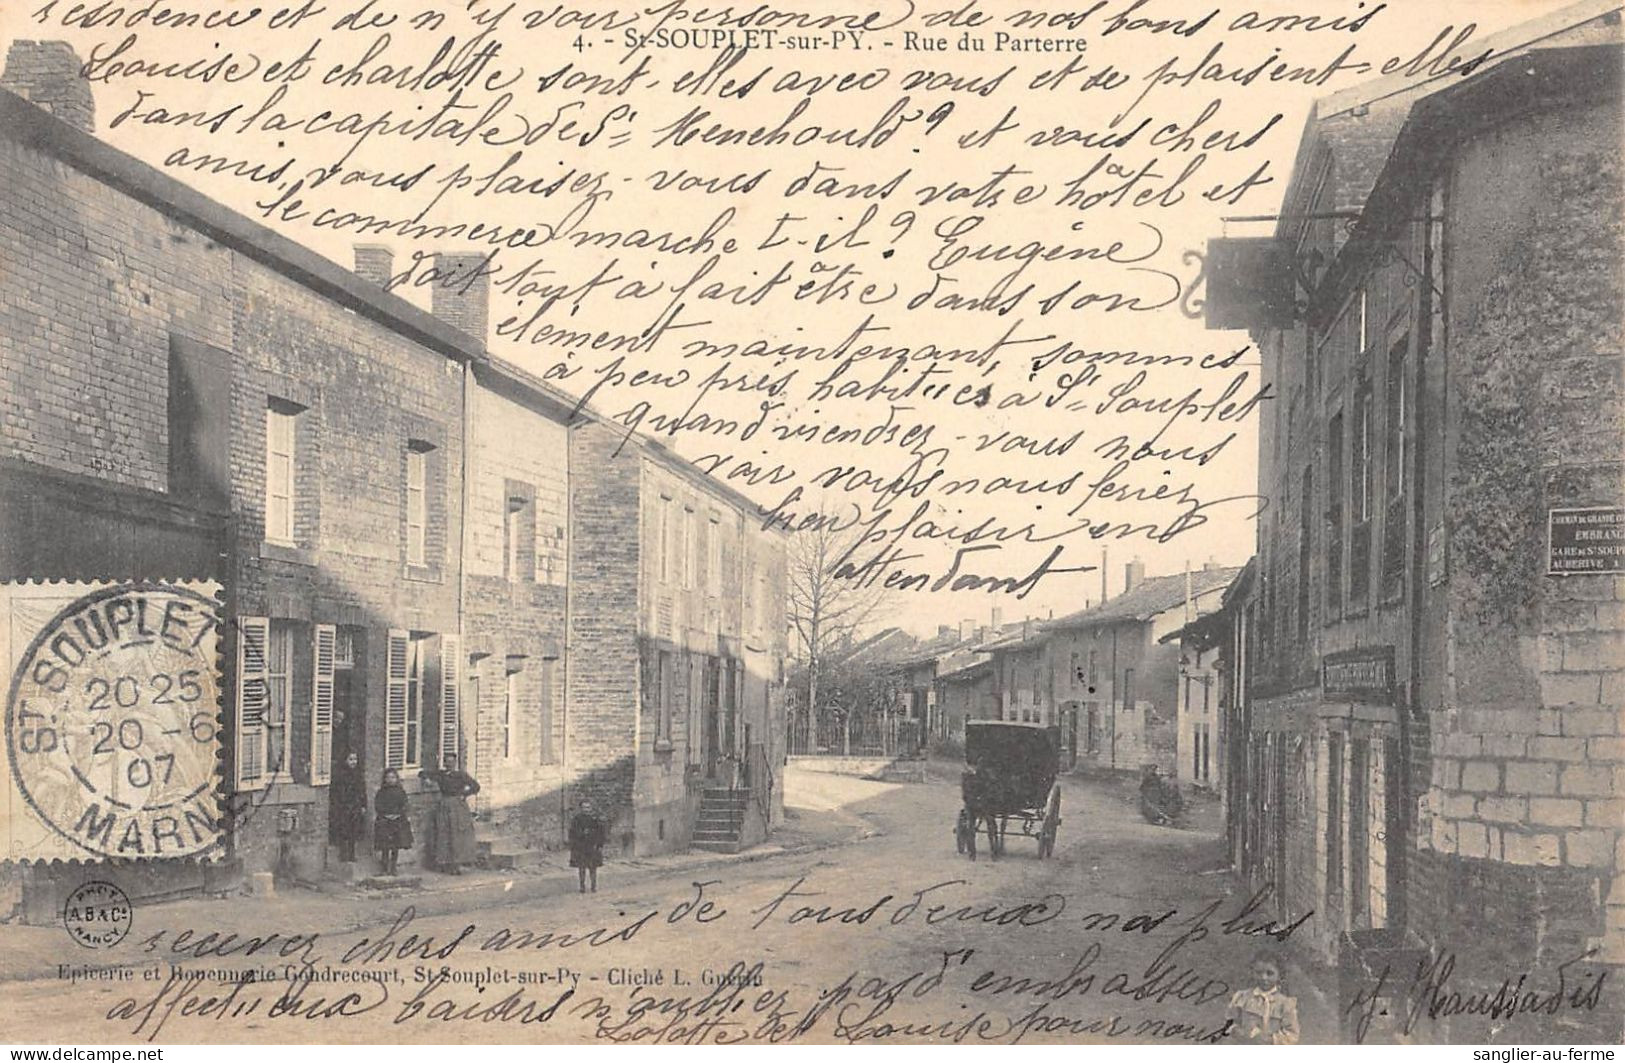 résidence et de n'y voir personne de nos bons amis
4. - St-SOUPLET-sur-PY. - Rue du Parterre
Louise et charlotte sont-elles avec vous et se plaisent-elles
dans la capitale de St Menehould? et vous chers
amis, vous plaisez-vous dans votre hôtel et
le commerce marche t-il? Eugène
doit tout à fait être dans son
élément maintenant, sommes
à peu près habitués à St Souplet
quand viendrez-vous nous
voir vous nous feriez
bien plaisir en
attendant
CHEMIN DE GRANDE
EMBRANC
GARE DE St SOUP
AUBERIVE A
ST SOUPLET
20 25
20 -6
07
MARNE
PHOT.
A.B & Cie
NANCY
recevez chers amis de tous deux nos plus
Epicerie et Rouennerie Gondrecourt, St-Souplet-sur-Py - Cliché L. Guérin
affectueux baisers n'oubliez pas d'embrasser
Lolotte et Louise pour nous
Haussadis
sanglier-au-ferme